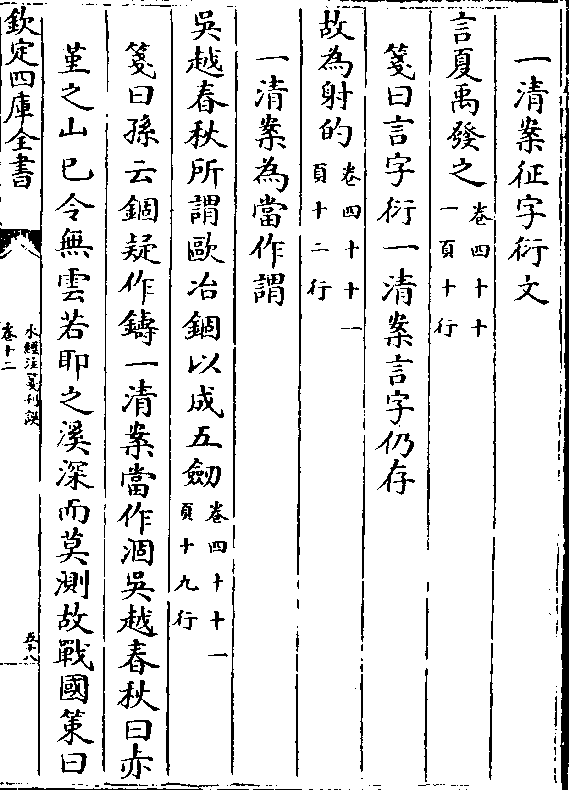 一清案征字衍文
言夏禹發之卷四十十
一頁十行
箋曰言字衍一清案言字仍存
故為射的卷四十十一
頁十二行
一清案為當作謂
吳越春秋所謂歐冶錮以成五劒卷四十十一
頁十九行
箋曰孫云錮疑作鑄一清案當作涸吳越春秋曰赤
堇之山巳令無雲若耶之溪深而莫測故戰國策曰
欽定四庫全書
水經注箋刊誤
卷十二